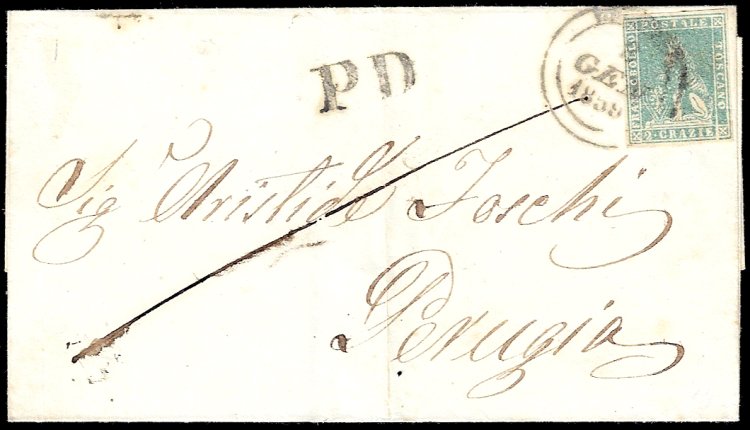 P D
GEN
1859
FRANCOBOLLO
POSTALE
TOSCANO
2·CRAZIE
Sig Aristide Toschi
Perugia